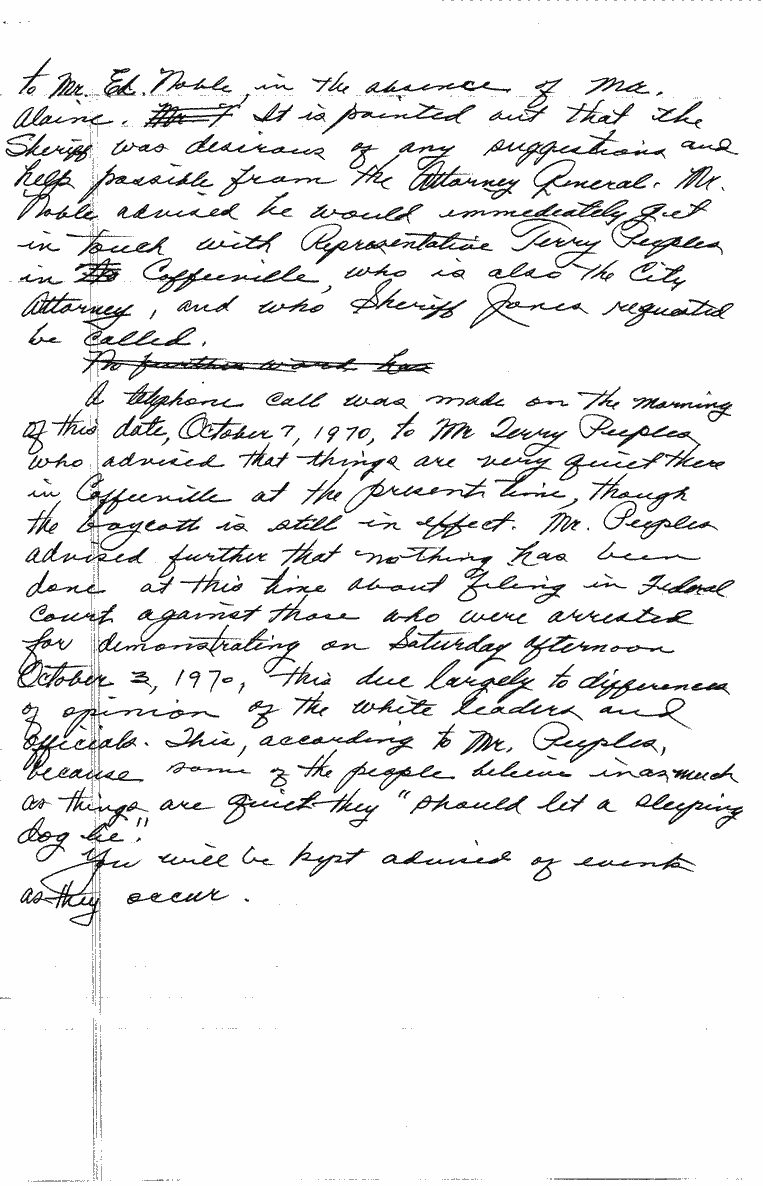 to Mr. Ed. Noble, in the absence of Mr.
Alain. Mr T It is pointed out that the
Sheriff was desirous of any suggestions and
help possible from the Attorney General. Mr.
Noble advised he would immediately get
in touch with Representative Terry Peeples
in Coffeeville, who is also the City
Attorney, and who Sheriff Jones requested
be called.
No further word has
A telphone call was made on the morning
of this date, October 7, 1970, to Mr Terry Peeples,
who advised that things are very quiet there
in Coffeeville at the present time, though
the boycott is still in effect. Mr. Peeples
advised further that nothing has been
done at this time about filing in Federal
Court against those who were arrested
for demonstrating on Saturday afternoon
October 3, 1970, this due largely to differences
of opinion of the white leaders and
officials. This, according to Mr. Peeples,
because some of the people believe inasmuch
as things are quiet they "should let a sleeping
dog lie."
You will be kept advised of events
as they occur.